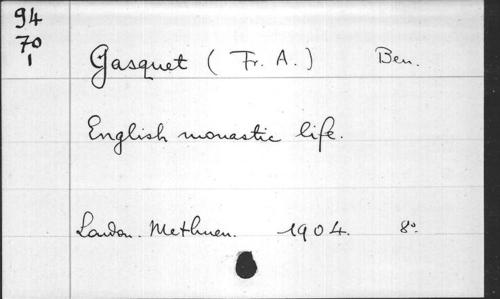 94
70
1
Gasquet ( Fr. A. ) Ben.
English monastic life.
London. Methuen. 1904. 8º.